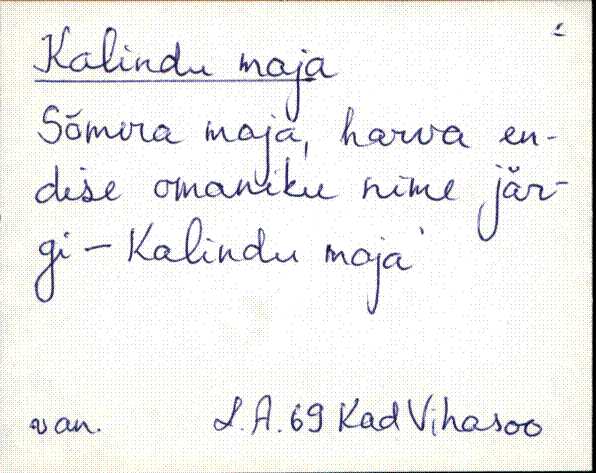 Kalindu maja
Sõmera maja, harva en-
dise omaniku nime jär-
gi – Kalindu maja'
van. L.A. 69 Kad Vihasoo